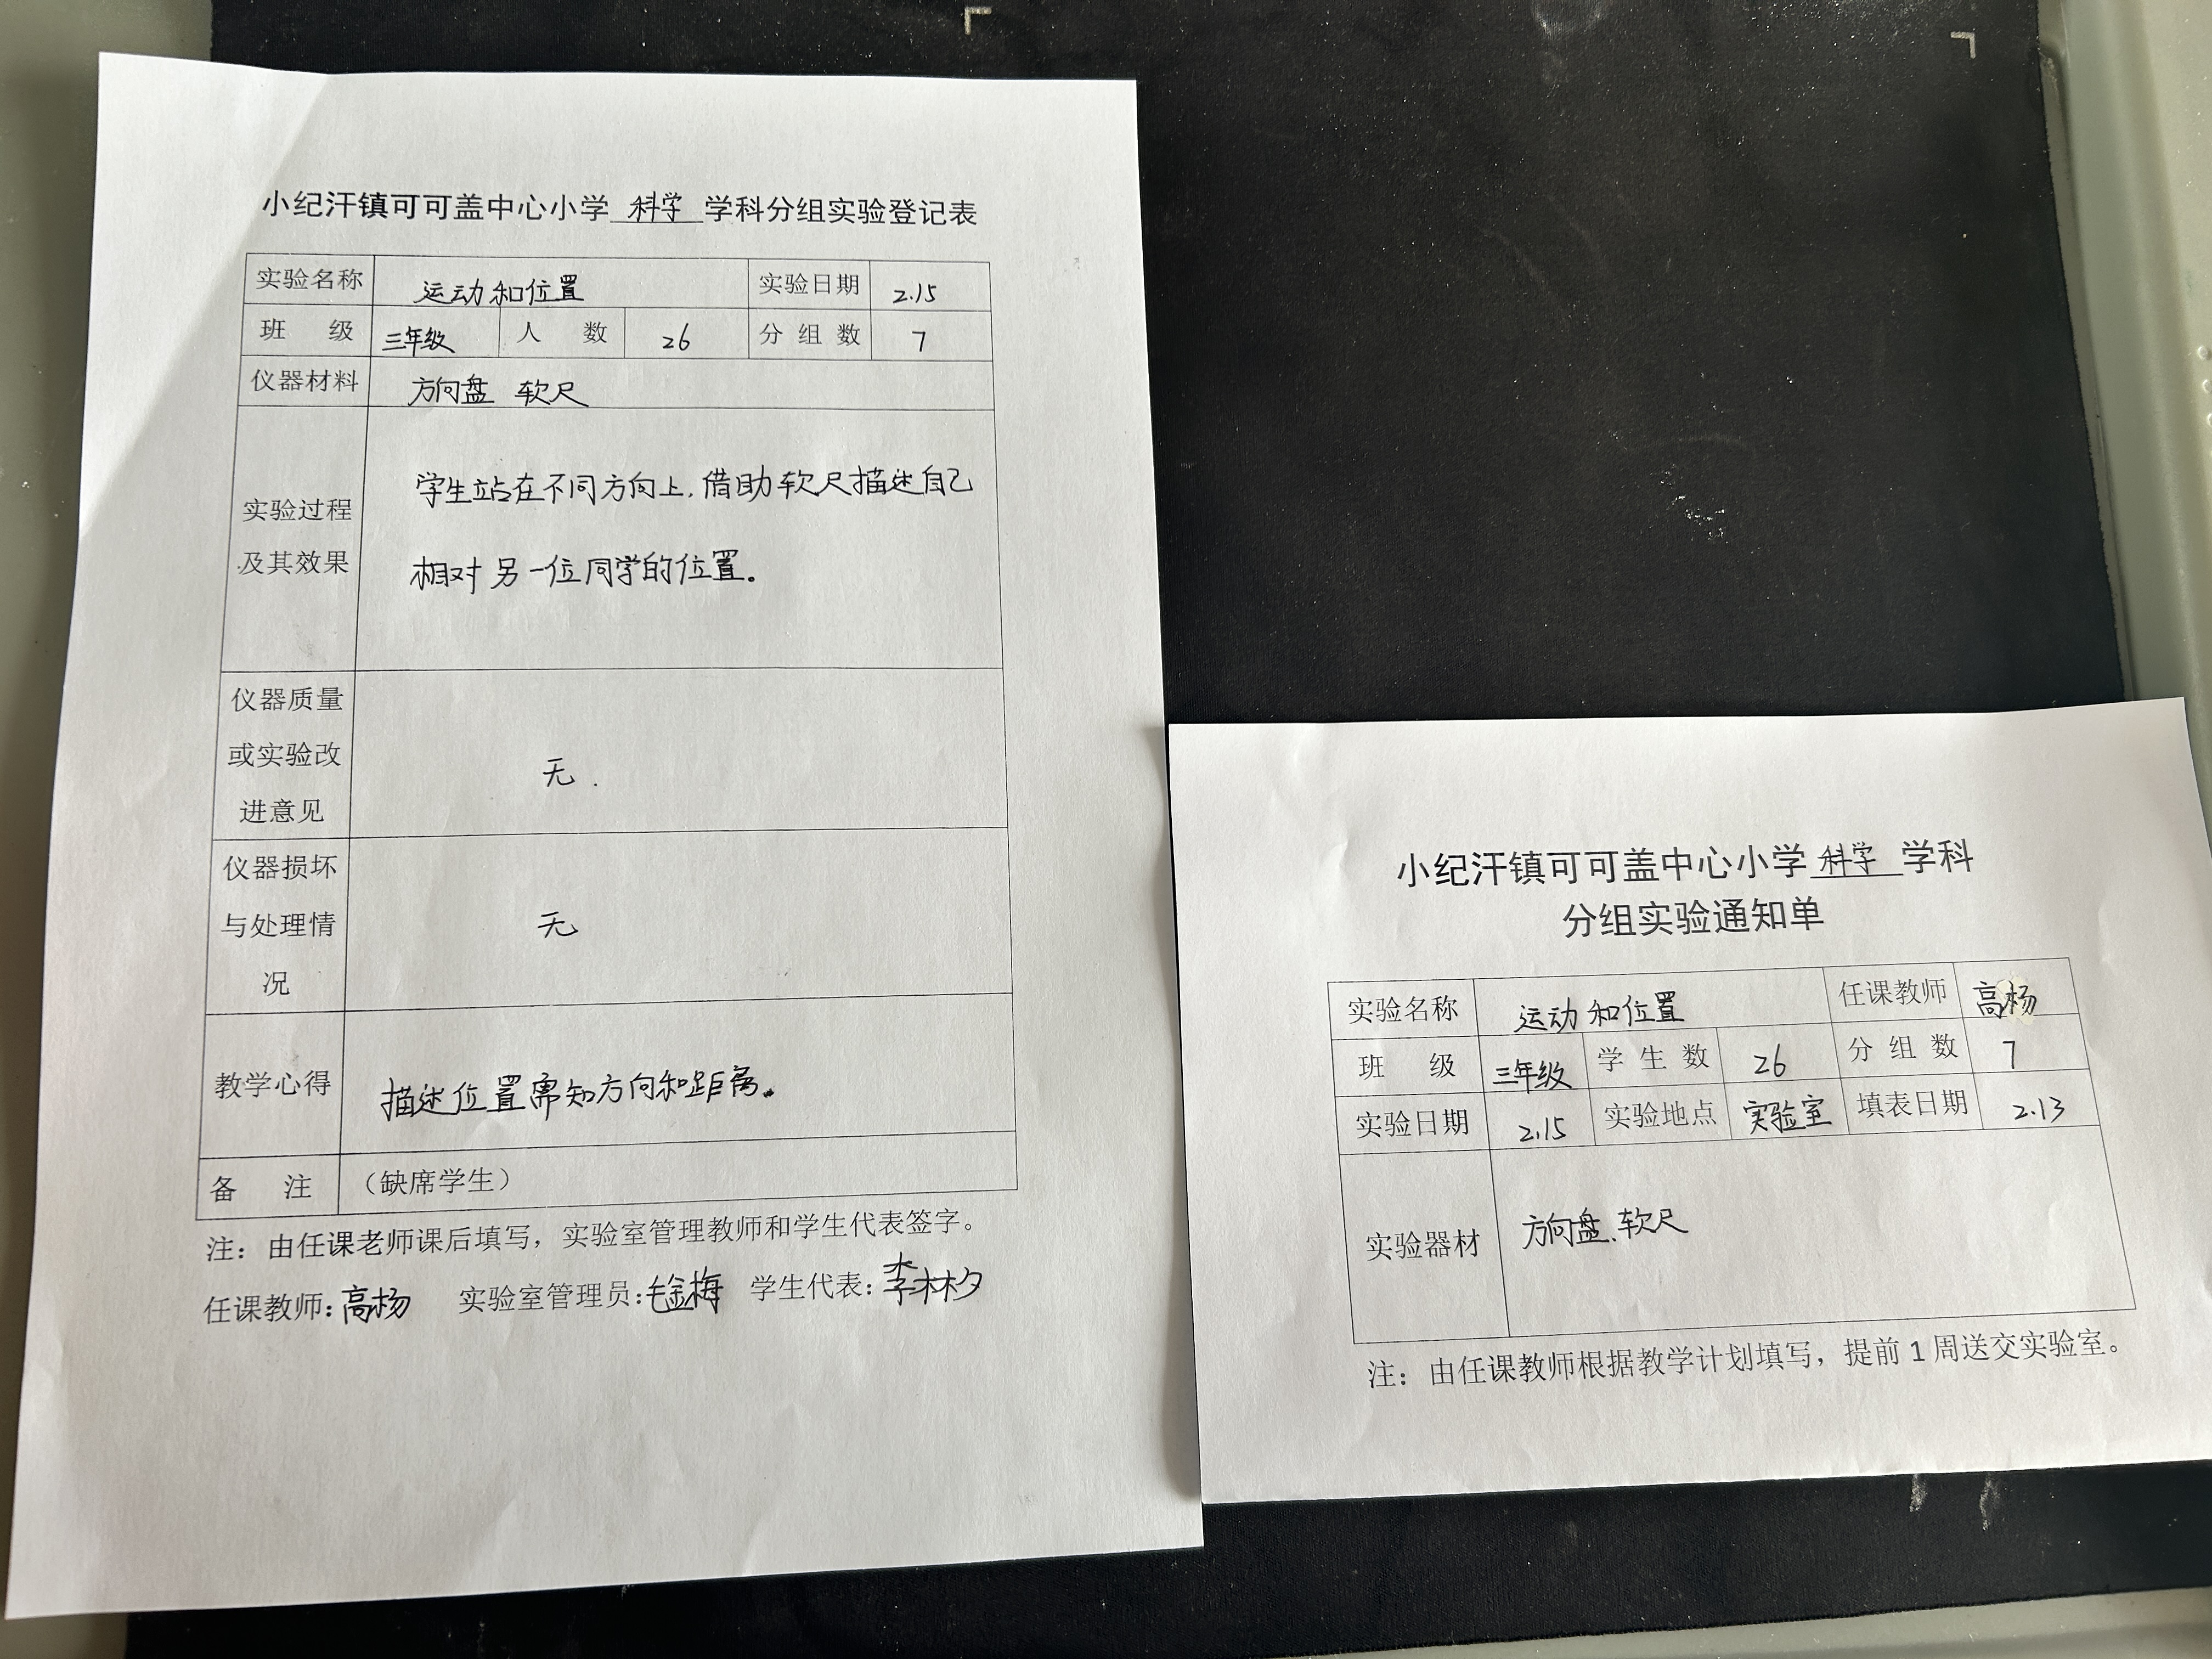 小纪汗镇可可盖中心小学 科学 学科分组实验登记表
实验名称 运动和位置 实验日期 2.15
班 级 三年级 人 数 26 分组数 7
仪器材料 方向盘 软尺
实验过程
及其效果
学生站在不同方向上,借助软尺描述自己
相对另一位同学的位置。
仪器质量
或实验改
进意见
无.
仪器损坏
与处理情
况
无
教学心得 描述位置需知方向和距离。
备 注 (缺席学生)
注:由任课老师课后填写,实验室管理教师和学生代表签字。
任课教师:高杨 实验室管理员:金梅 学生代表:李林夕
小纪汗镇可可盖中心小学 科学 学科
分组实验通知单
实验名称 运动和位置 任课教师 高杨
班 级 三年级 学生数 26 分组数 7
实验日期 2.15 实验地点 实验室 填表日期 2.13
实验器材 方向盘.软尺
注:由任课教师根据教学计划填写,提前1周送交实验室。